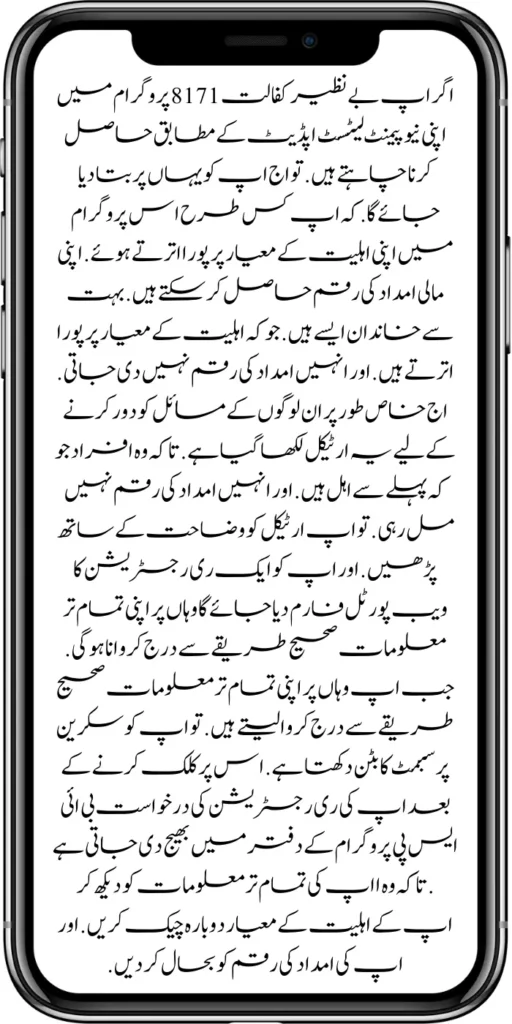 اگر اپ بے نظیر کفالت 8171 پروگرام میں
اپنی نیو پیمنٹ لیٹسٹ اپڈیٹ کے مطابق حاصل
کرنا چاہتے ہیں. تو اج اپ کو یہاں پر بتا دیا
جائے گا. کہ اپ کس طرح اس پروگرام
میں اپنی اہلیت کے معیار پر پورا اترتے ہوئے. اپنی
مالی امداد کی رقم حاصل کر سکتے ہیں. بہت
سے خاندان ایسے ہیں. جو کہ اہلیت کے معیار پر پورا
اترتے ہیں. اور انہیں امداد کی رقم نہیں دی جاتی.
اج خاص طور پر ان لوگوں کے مسائل کو دور کرنے
کے لیے یہ ارٹیکل لکھا گیا ہے. تاکہ وہ افراد جو
کہ پہلے سے اہل ہیں. اور انہیں امداد کی رقم نہیں
مل رہی. تو اپ ارٹیکل کو وضاحت کے ساتھ
پڑھیں. اور اپ کو ایک ری رجسٹریشن کا
ویب پورٹل فارم دیا جائے گا وہاں پر اپنی تمام تر
معلومات صحیح طریقے سے درج کروانا ہوگی.
جب اپ وہاں پر اپنی تمام تر معلومات صحیح
طریقے سے درج کروا لیتے ہیں. تو اپ کو سکرین
پر سبمٹ کا بٹن دکھتا ہے. اس پر کلک کرنے کے
بعد اپ کی ری رجسٹریشن کی درخواست بی ائی
ایس پی پروگرام کے دفتر میں بھیج دی جاتی ہے
. تاکہ وہ ااپ کی تمام تر معلومات کو دیکھ کر
اپ کے اہلیت کے معیار دوبارہ چیک کریں. اور
اپ کی امداد کی رقم کو بحال کر دیں.